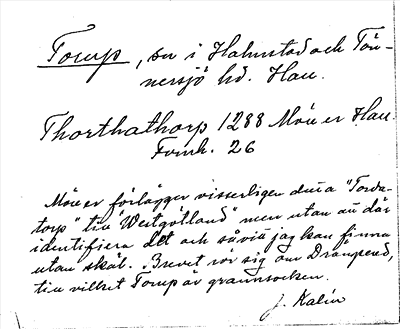 Torup, sn i Halmstad och Tön-
nersjö hd. Hall.
Thorthathorp 1288 Möller Hall.
Fornh. 26
Möller förlägger visserligen detta "Torda-
torp" till "Westgötland" men utan att där
identifiera det och såvitt jag kan finna
utan skäl. Brevet rör sig om Drängsered,
till vilket Torup är grannsocken.
J. Kalén